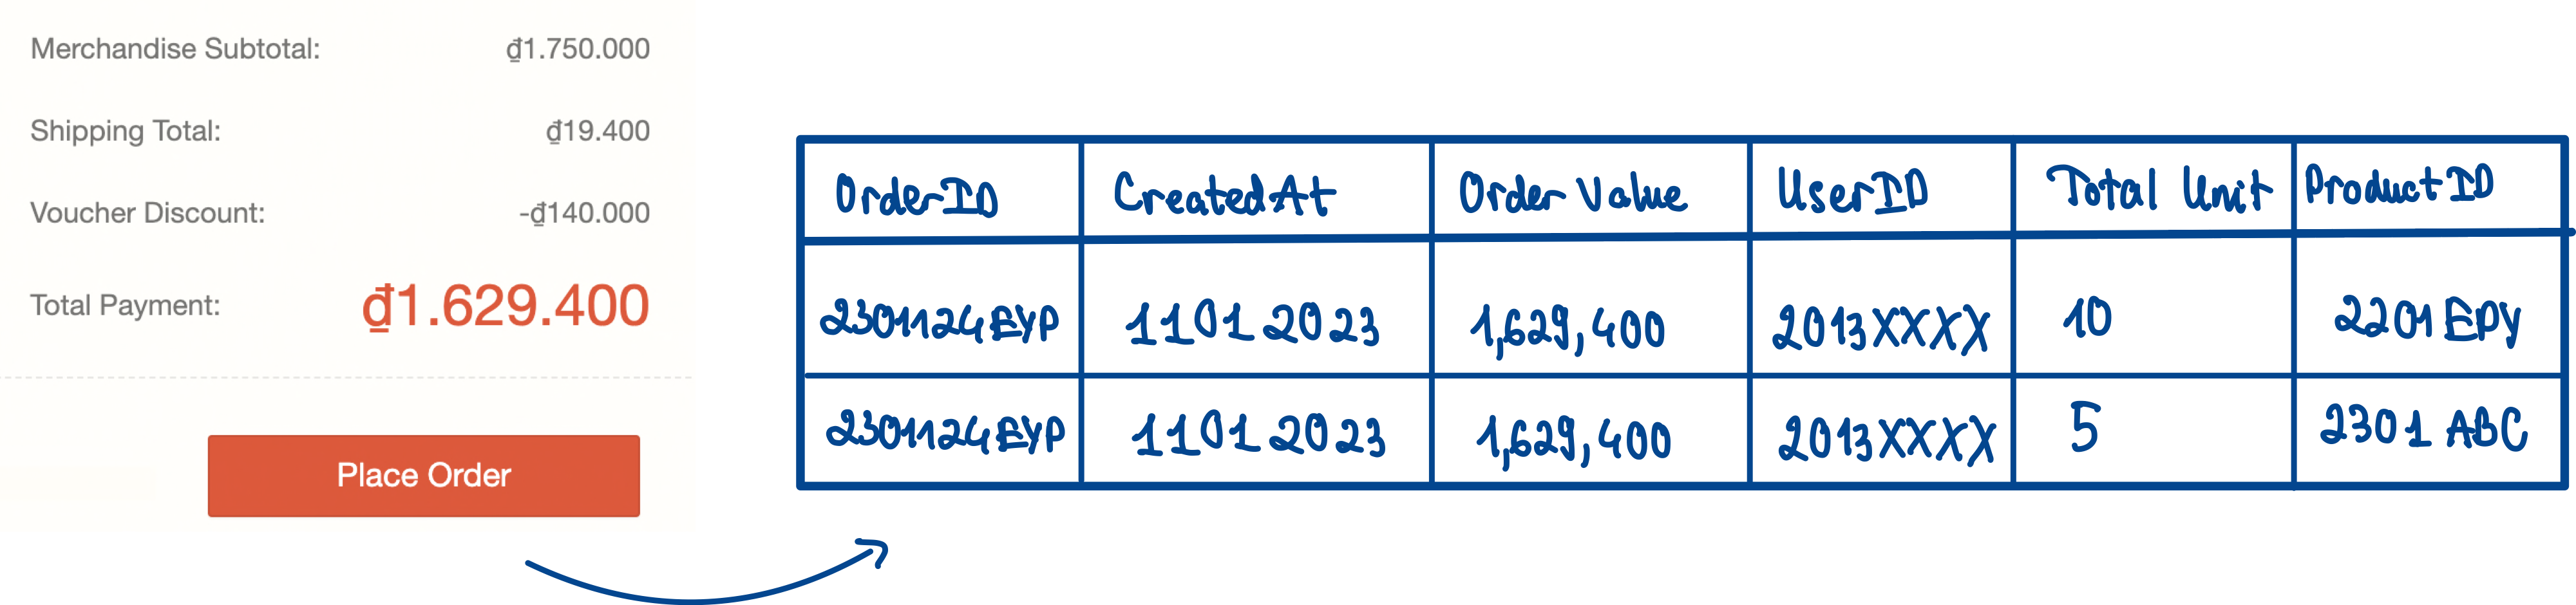 Merchandise Subtotal: ₫1.750.000
Shipping Total: ₫19.400
Voucher Discount: -₫140.000
Total Payment: ₫1.629.400
Place Order
OrderID CreatedAt Order Value UserID Total Unit ProductID
2301124EYP 11012023 1,629,400 2013XXXX 10 2201EPY
2301124EYP 11012023 1,629,400 2013XXXX 5 2301ABC